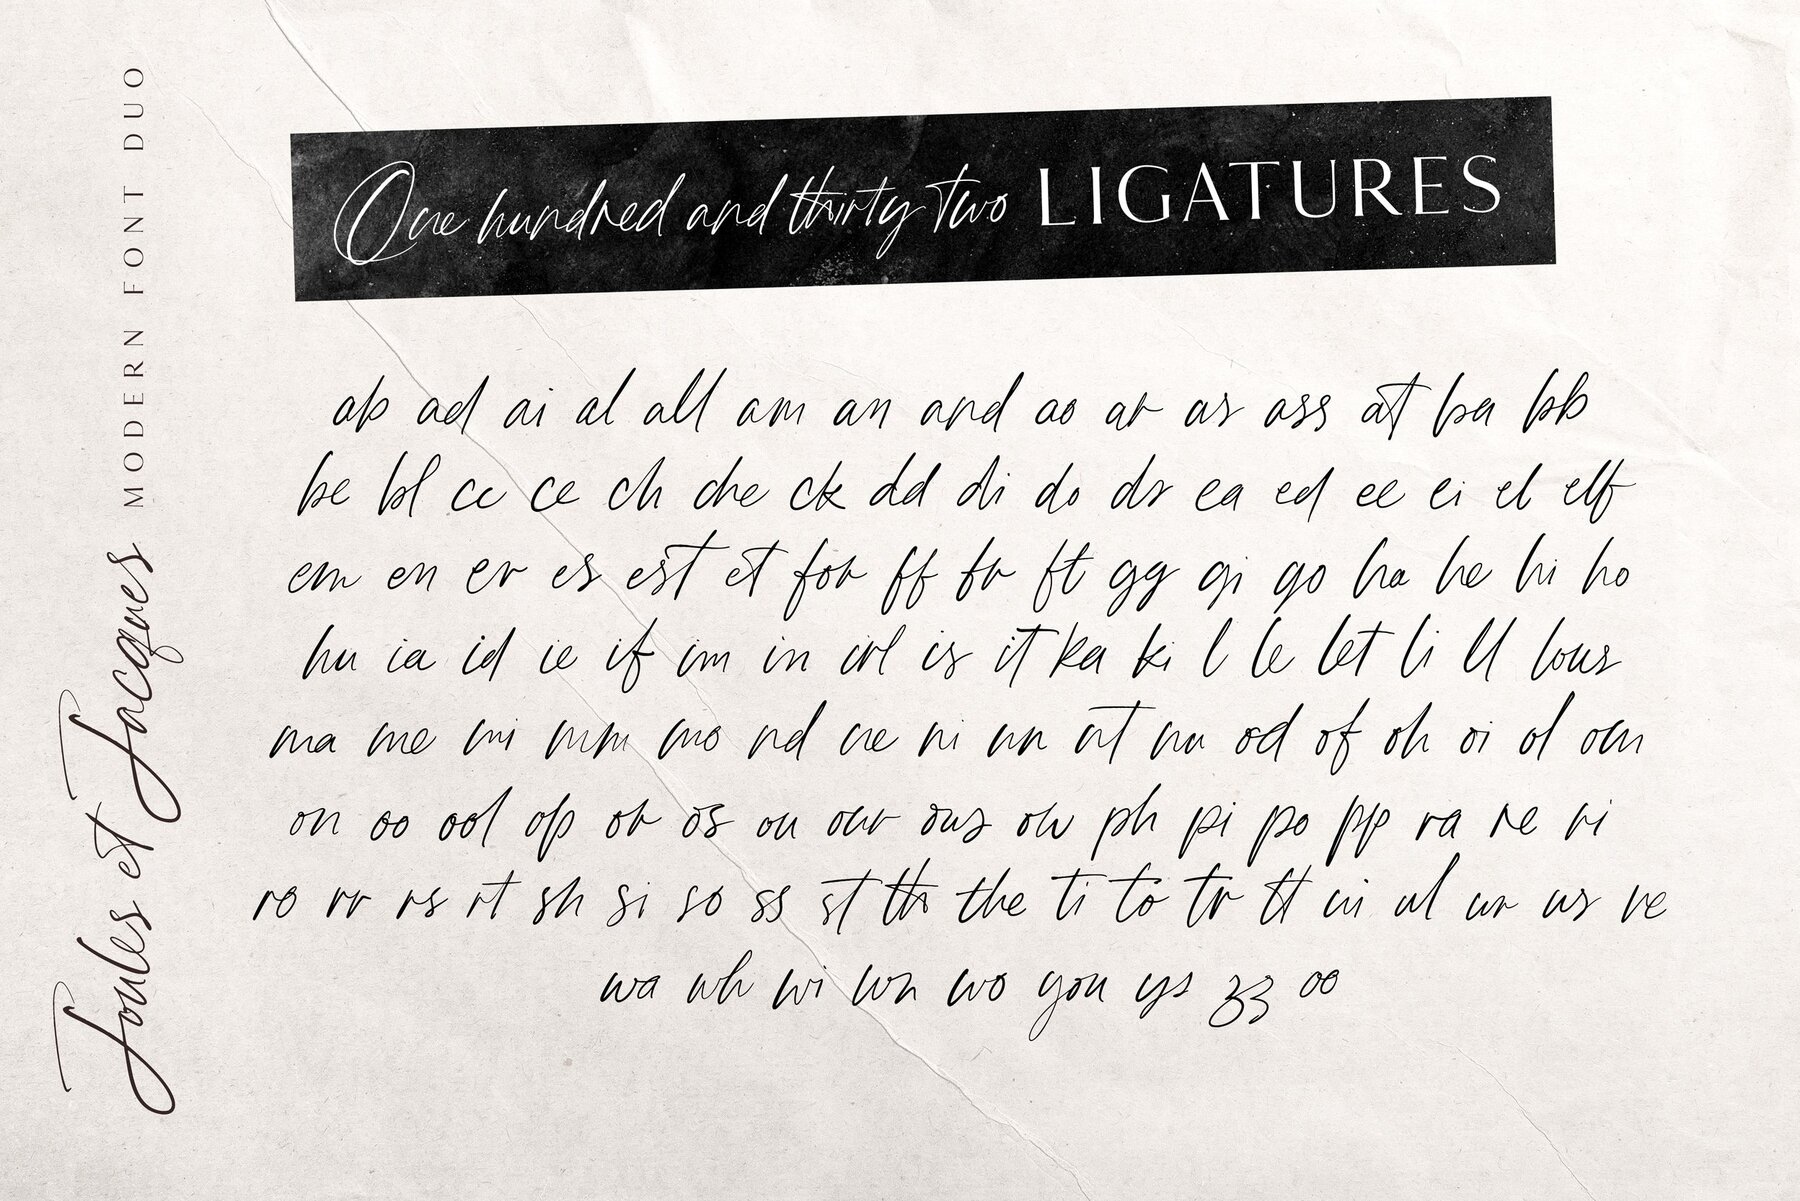 Joules et Jacques MODERN FONT DUO
One hundred and thirty two LIGATURES
ab ad ai al all am an and ao ar as ass at ba bb
be bl cc ce ch che ck dd di do dr ea ed ee ei el elf
em en er es est et for ff fr ft gg gi go ha he hi ho
hu ia id ie if im in irl is it ka ki l le let li ll lous
ma me mi mm mo nd ne ni nn nt nu od of oh oi ol om
on oo ool op or os ou our ous ow ph pi po pp ra re ri
ro rr rs rt sh si so ss st th the ti to tr tt ui ul ur us ve
wa wh wi wn wo you ys zz oo